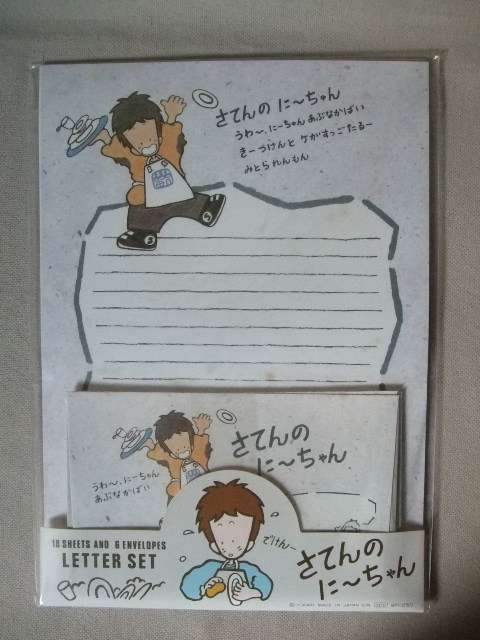 さてんの に〜ちゃん
うわ〜、に〜ちゃん あぶなかばい
き〜つけんと ケがすっごたる〜
みとられんもん
さてんの
に〜ちゃん
うわ〜、に〜ちゃん
あぶなかばい
18 SHEETS AND 6 ENVELOPES
LETTER SET
でけん〜
さてんの
に〜ちゃん
MADE IN JAPAN